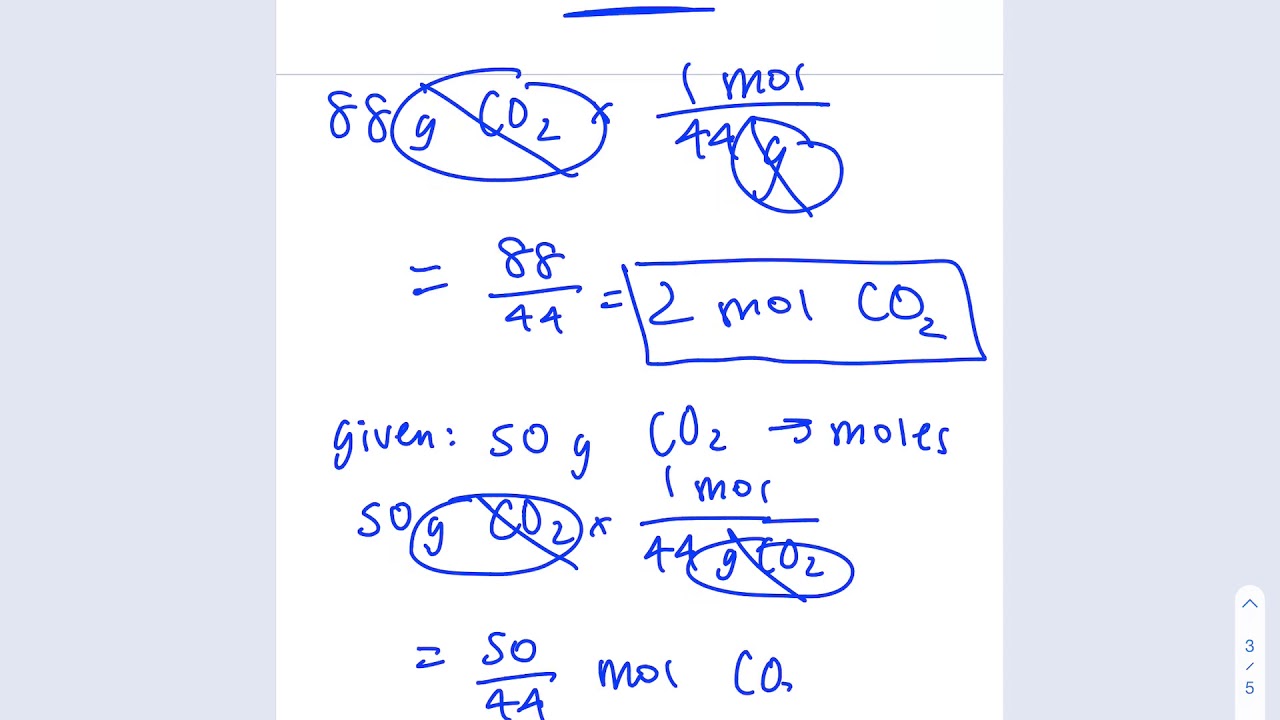 88 g CO₂ × 1 mol / 44 g
= 88 / 44 = 2 mol CO₂
given: 50 g CO₂ → moles
50 g CO₂ × 1 mol / 44 g CO₂
= 50 / 44 mol CO₂
3 / 5